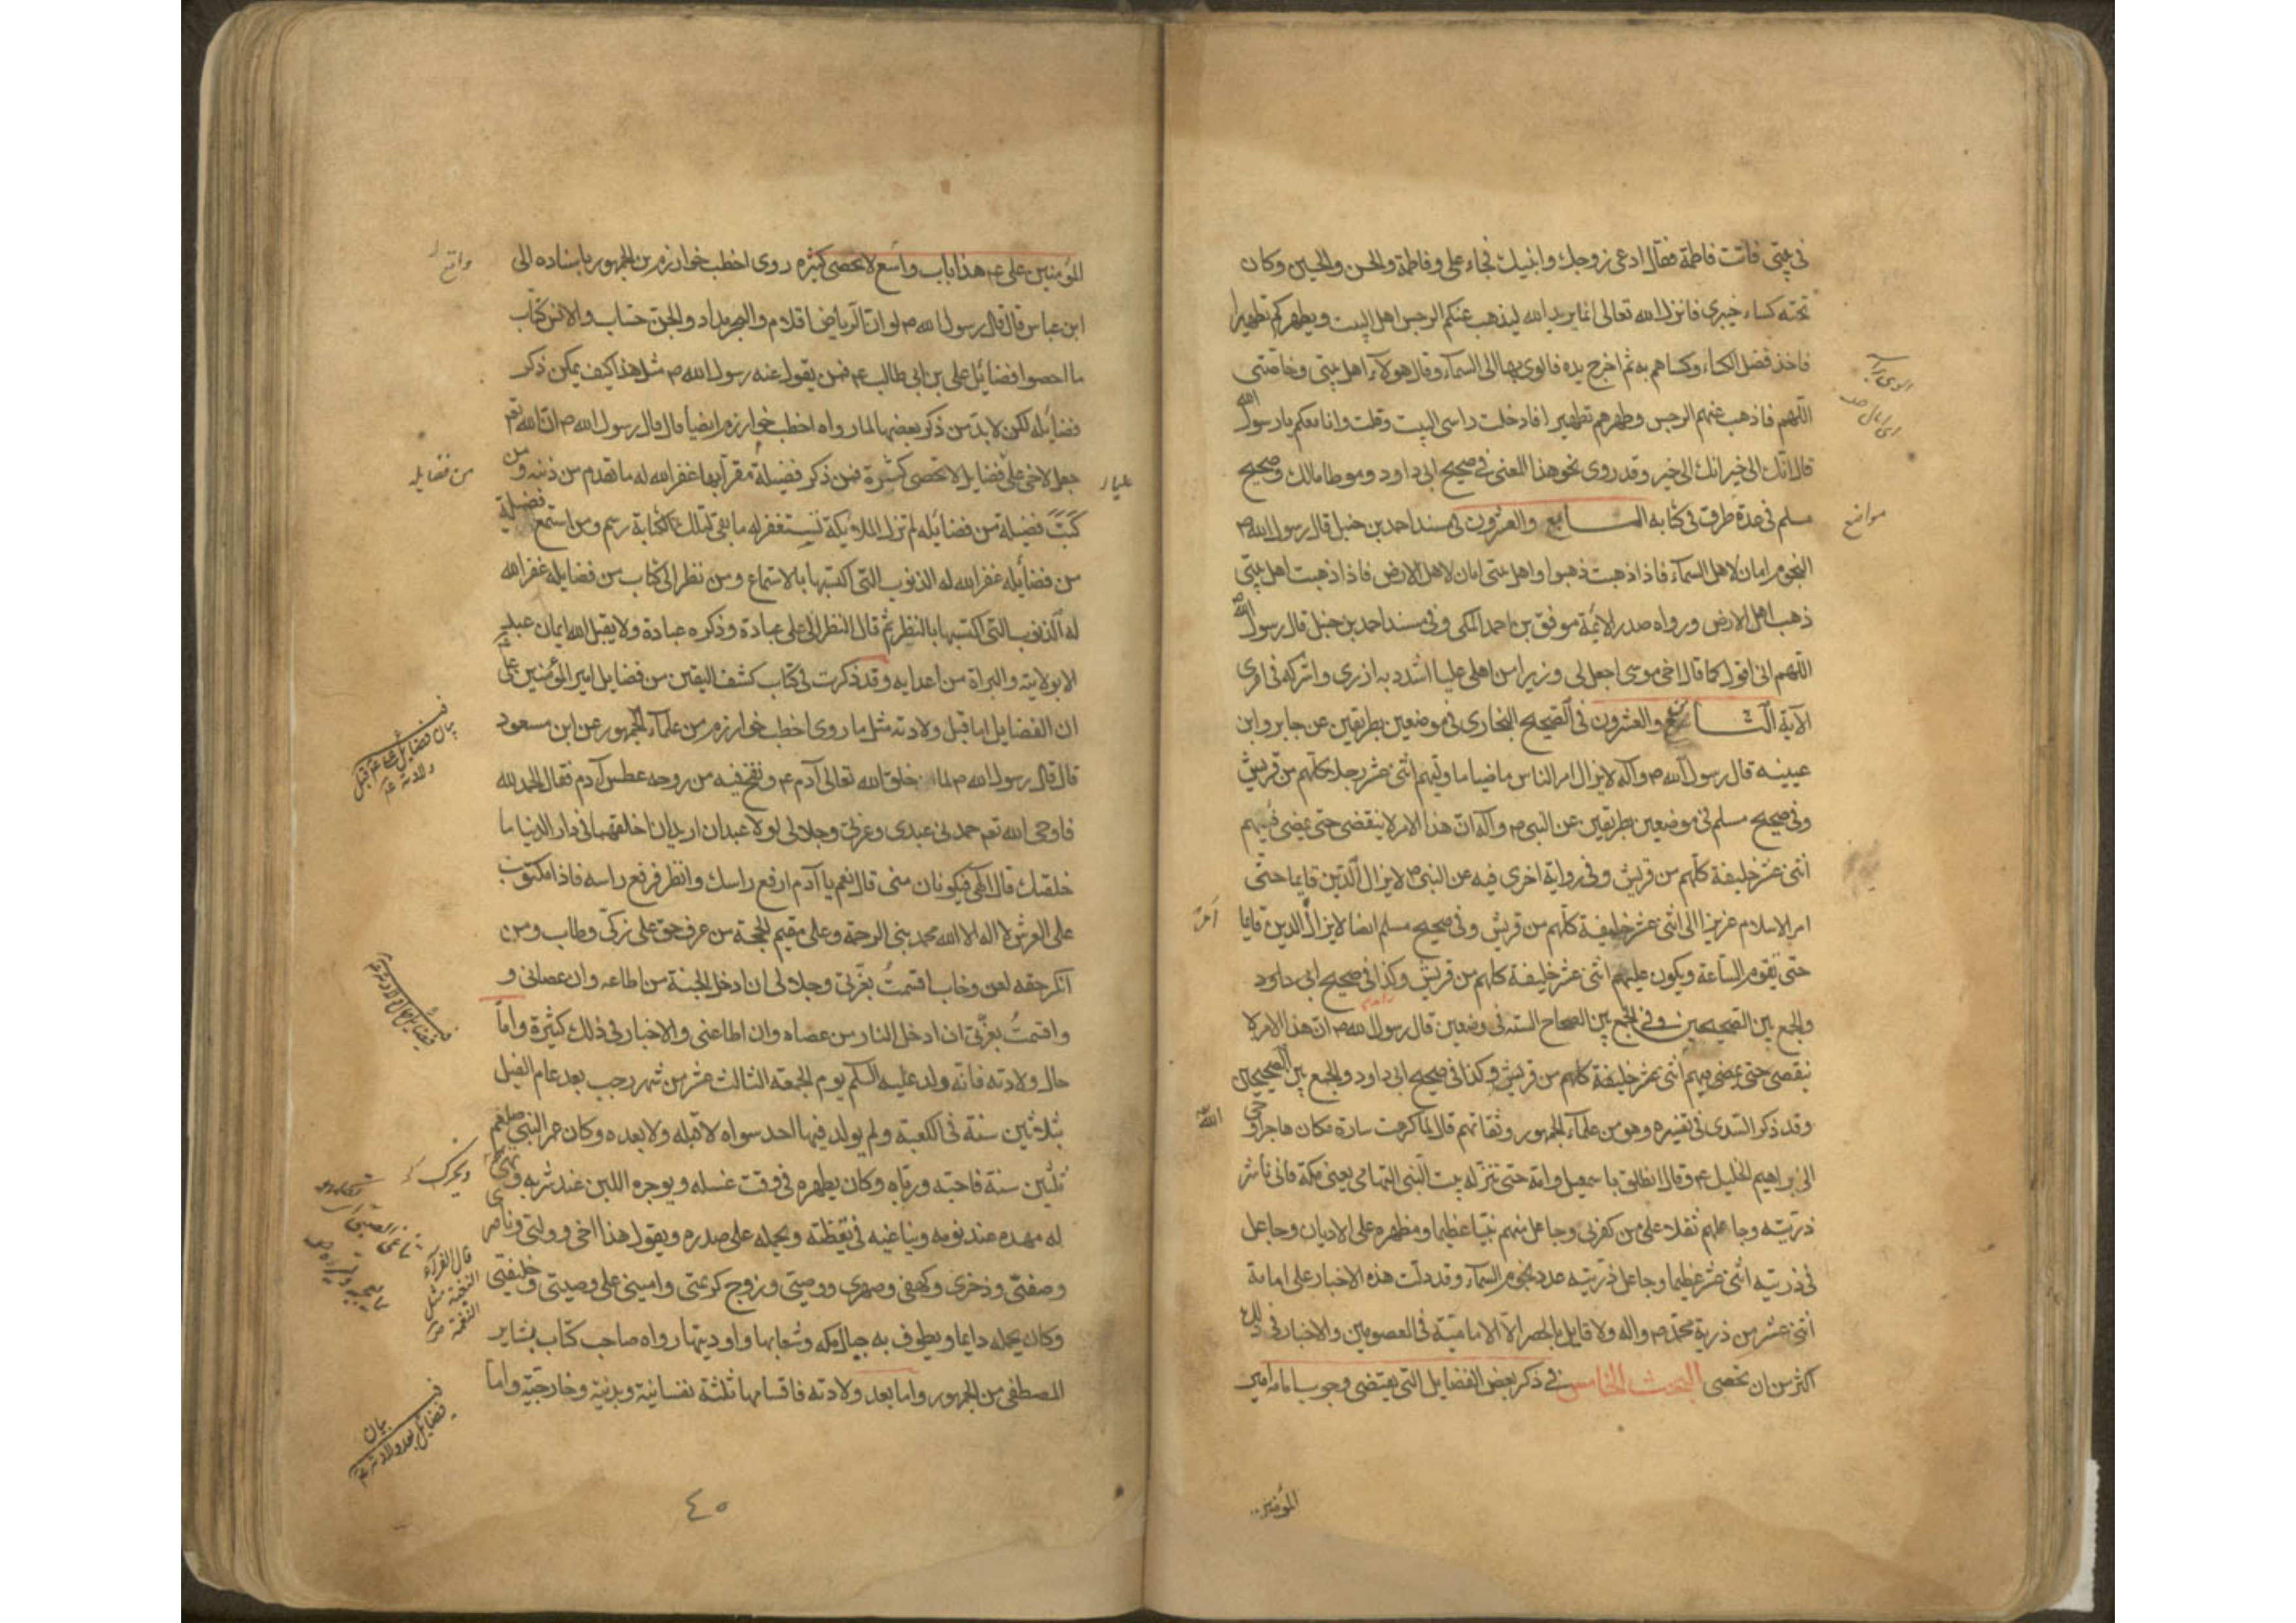 في بيتي فاتت فاطمة فقال ادعي زوجك وابنيك فجاء علي وفاطمة والحسن والحسين وكان
تحته كساء خيبري فانزل الله تعالى انما يريد الله ليذهب عنكم الرجس اهل البيت ويطهركم تطهيرا
فاخذ فضل الكساء وكساهم به ثم اخرج يده فالوى بها الى السماء وقال هولاء اهل بيتي وخاصتي
اللهم فاذهب عنهم الرجس وطهرهم تطهيرا فادخلت راسي البيت وقلت وانا معكم يا رسول الله
قال انك الى خير انك الى خير وقد روى نحو هذا المعنى في صحيح ابي داود وموطا مالك وصحيح
مسلم في عدة طرق في كتابه السابع والعشرون في مسند احمد بن حنبل قال رسول الله ص
النجوم امان لاهل السماء فاذا ذهبت ذهبوا واهل بيتي امان لاهل الارض فاذا ذهبت اهل بيتي
ذهب اهل الارض ورواه صدر الائمة موفق بن احمد المكي وفي مسند احمد بن حنبل قال رسول الله
اللهم اني اقول كما قال اخي موسى اجعل لي وزيرا من اهلي عليا اشدد به ازري واشركه في امري
الآية التاسع والعشرون في الصحيح البخاري في موضعين بطريقين عن جابر وابن
عيينه قال رسول الله ص وآله لا يزال امر الناس ماضيا ما وليهم اثنى عشر رجلا كلهم من قريش
وفي صحيح مسلم في موضعين بطريقين عن النبي ص وآله ان هذا الامر لا ينقضي حتى يمضي فيهم
اثنى عشر خليفة كلهم من قريش وفي رواية اخرى فيه عن النبي ص لا يزال الدين قايما حتى
امر الاسلام عزيزا الى اثنى عشر خليفة كلهم من قريش وفي صحيح مسلم ايضا لا يزال الدين قايما
حتى تقوم الساعة ويكون عليهم اثنى عشر خليفة كلهم من قريش وكذا في صحيح ابي داود
والجمع بين الصحيحين وفي الجمع بين الصحاح الستة في وضعين قال رسول الله ص ان هذا الامر لا
ينقضي حتى يمضي فيهم اثنى عشر خليفة كلهم من قريش وكذا في صحيح ابي داود والجمع بين الصحيحين
وقد ذكر السدي في تفسيره وهو من علماء الجمهور وثقاتهم قال لما كرهت سارة مكان هاجر اوحى الله
الى ابراهيم الخليل ع وقال انطلق باسمعيل وامه حتى تنزله بيت النبي التهامي يعني مكة فاني ناشر
ذريته وجاعلهم ثقلا على من كفر بي وجاعل منهم نبيا عظيما ومظهره على الاديان وجاعل
في ذريته اثنى عشر عظيما وجاعل ذريته عدد نجوم السماء وقد دلت هذه الاخبار على امامة
اثنى عشر من ذرية محمد ص واله ولا قايل بالحصر الا الامامية في المعصومين والاخبار في ذلك
اكثر من ان تحصى البحث الخامس في ذكر بعض الفضايل التي يقتضي وجوب امامه امير
مواضع
المؤمنين
المؤمنين علي ع هذا باب واسع لا يحصى كثيره روى اخطب خوارزم من الجمهور باسناده الى
ابن عباس قال قال رسول الله ص لو ان الرياض اقلام والبحر مداد والجن حساب والانس كتاب
ما احصوا فضائل علي بن ابي طالب ع فمن يقول عنه رسول الله ص مثل هذا كيف يمكن ذكر
فضائله لكن لا بد من ذكر بعضها لما رواه اخطب خوارزم ايضا قال قال رسول الله ص ان الله تعم
جعل لاخي علي فضايل لا تحصى كثيرة فمن ذكر فضيلة مقرا بها غفر الله له ما تقدم من ذنبه ومن
كتب فضيلة من فضائله لم تزل الملائكة تستغفر له ما بقي لتلك الكتابة رسم ومن استمع فضيلة
من فضائله غفر الله له الذنوب التي اكتسبها بالاستماع ومن نظر الى كتاب من فضايله غفر الله
له الذنوب التي اكتسبها بالنظر ثم قال النظر الى علي عبادة وذكره عبادة ولا يقبل الله ايمان عبد
الا بولايته والبراة من اعدايه وقد ذكرت في كتاب كشف اليقين من فضايل امير المؤمنين علي ع
ان الفضايل اما قبل ولادته مثل ما روى اخطب خوارزم من علماء الجمهور عن ابن مسعود
قال قال رسول الله ص لما خلق الله تعالى آدم ع ونفخ فيه من روحه عطس آدم فقال الحمد لله
فاوحى الله تعم حمدني عبدي وعزتي وجلالي لولا عبدان اريد ان اخلقهما في دار الدنيا ما
خلقتك قال الهي فيكونان مني قال نعم يا آدم ارفع راسك وانظر فرفع راسه فاذا مكتوب
على العرش لا اله الا الله محمد نبي الرحمة وعلي مقيم الحجة من عرف حق علي زكى وطاب ومن
انكر حقه لعن وخاب اقسمت بعزتي وجلالي ان ادخل الجنة من اطاعه وان عصاني و
واقسمت بعزتي ان ادخل النار من عصاه وان اطاعني والاخبار في ذلك كثيرة واما
حال ولادته فانه ولد عليه السلم يوم الجمعة الثالث عشر من شهر رجب بعد عام الفيل
بثلاثين سنة في الكعبة ولم يولد فيها احد سواه لا قبله ولا بعده وكان عمر النبي صلعم
ثلثين سنة فاحبه ورباه وكان يطهره في وقت غسله ويوجره اللبن عند شربه و
له مهده عند نومه ويناغيه في يقظته ويحمله على صدره ويقول هذا اخي ووليي وناصري
وصفيي وذخري وكهفي وصهري ووصيي وزوج كريمتي واميني على وصيتي وخليفتي
وكان يحمله دايما ويطوف به جبال مكه وشعابها واوديتها رواه صاحب كتاب بشاير
المصطفى من الجمهور واما بعد ولادته فاقسامها ثلثة نفسانية وبدنية وخارجية واما
من فضايله
ويحرك
قال الفراء
بيان
فضايل بعد ولادته ع
٤٥